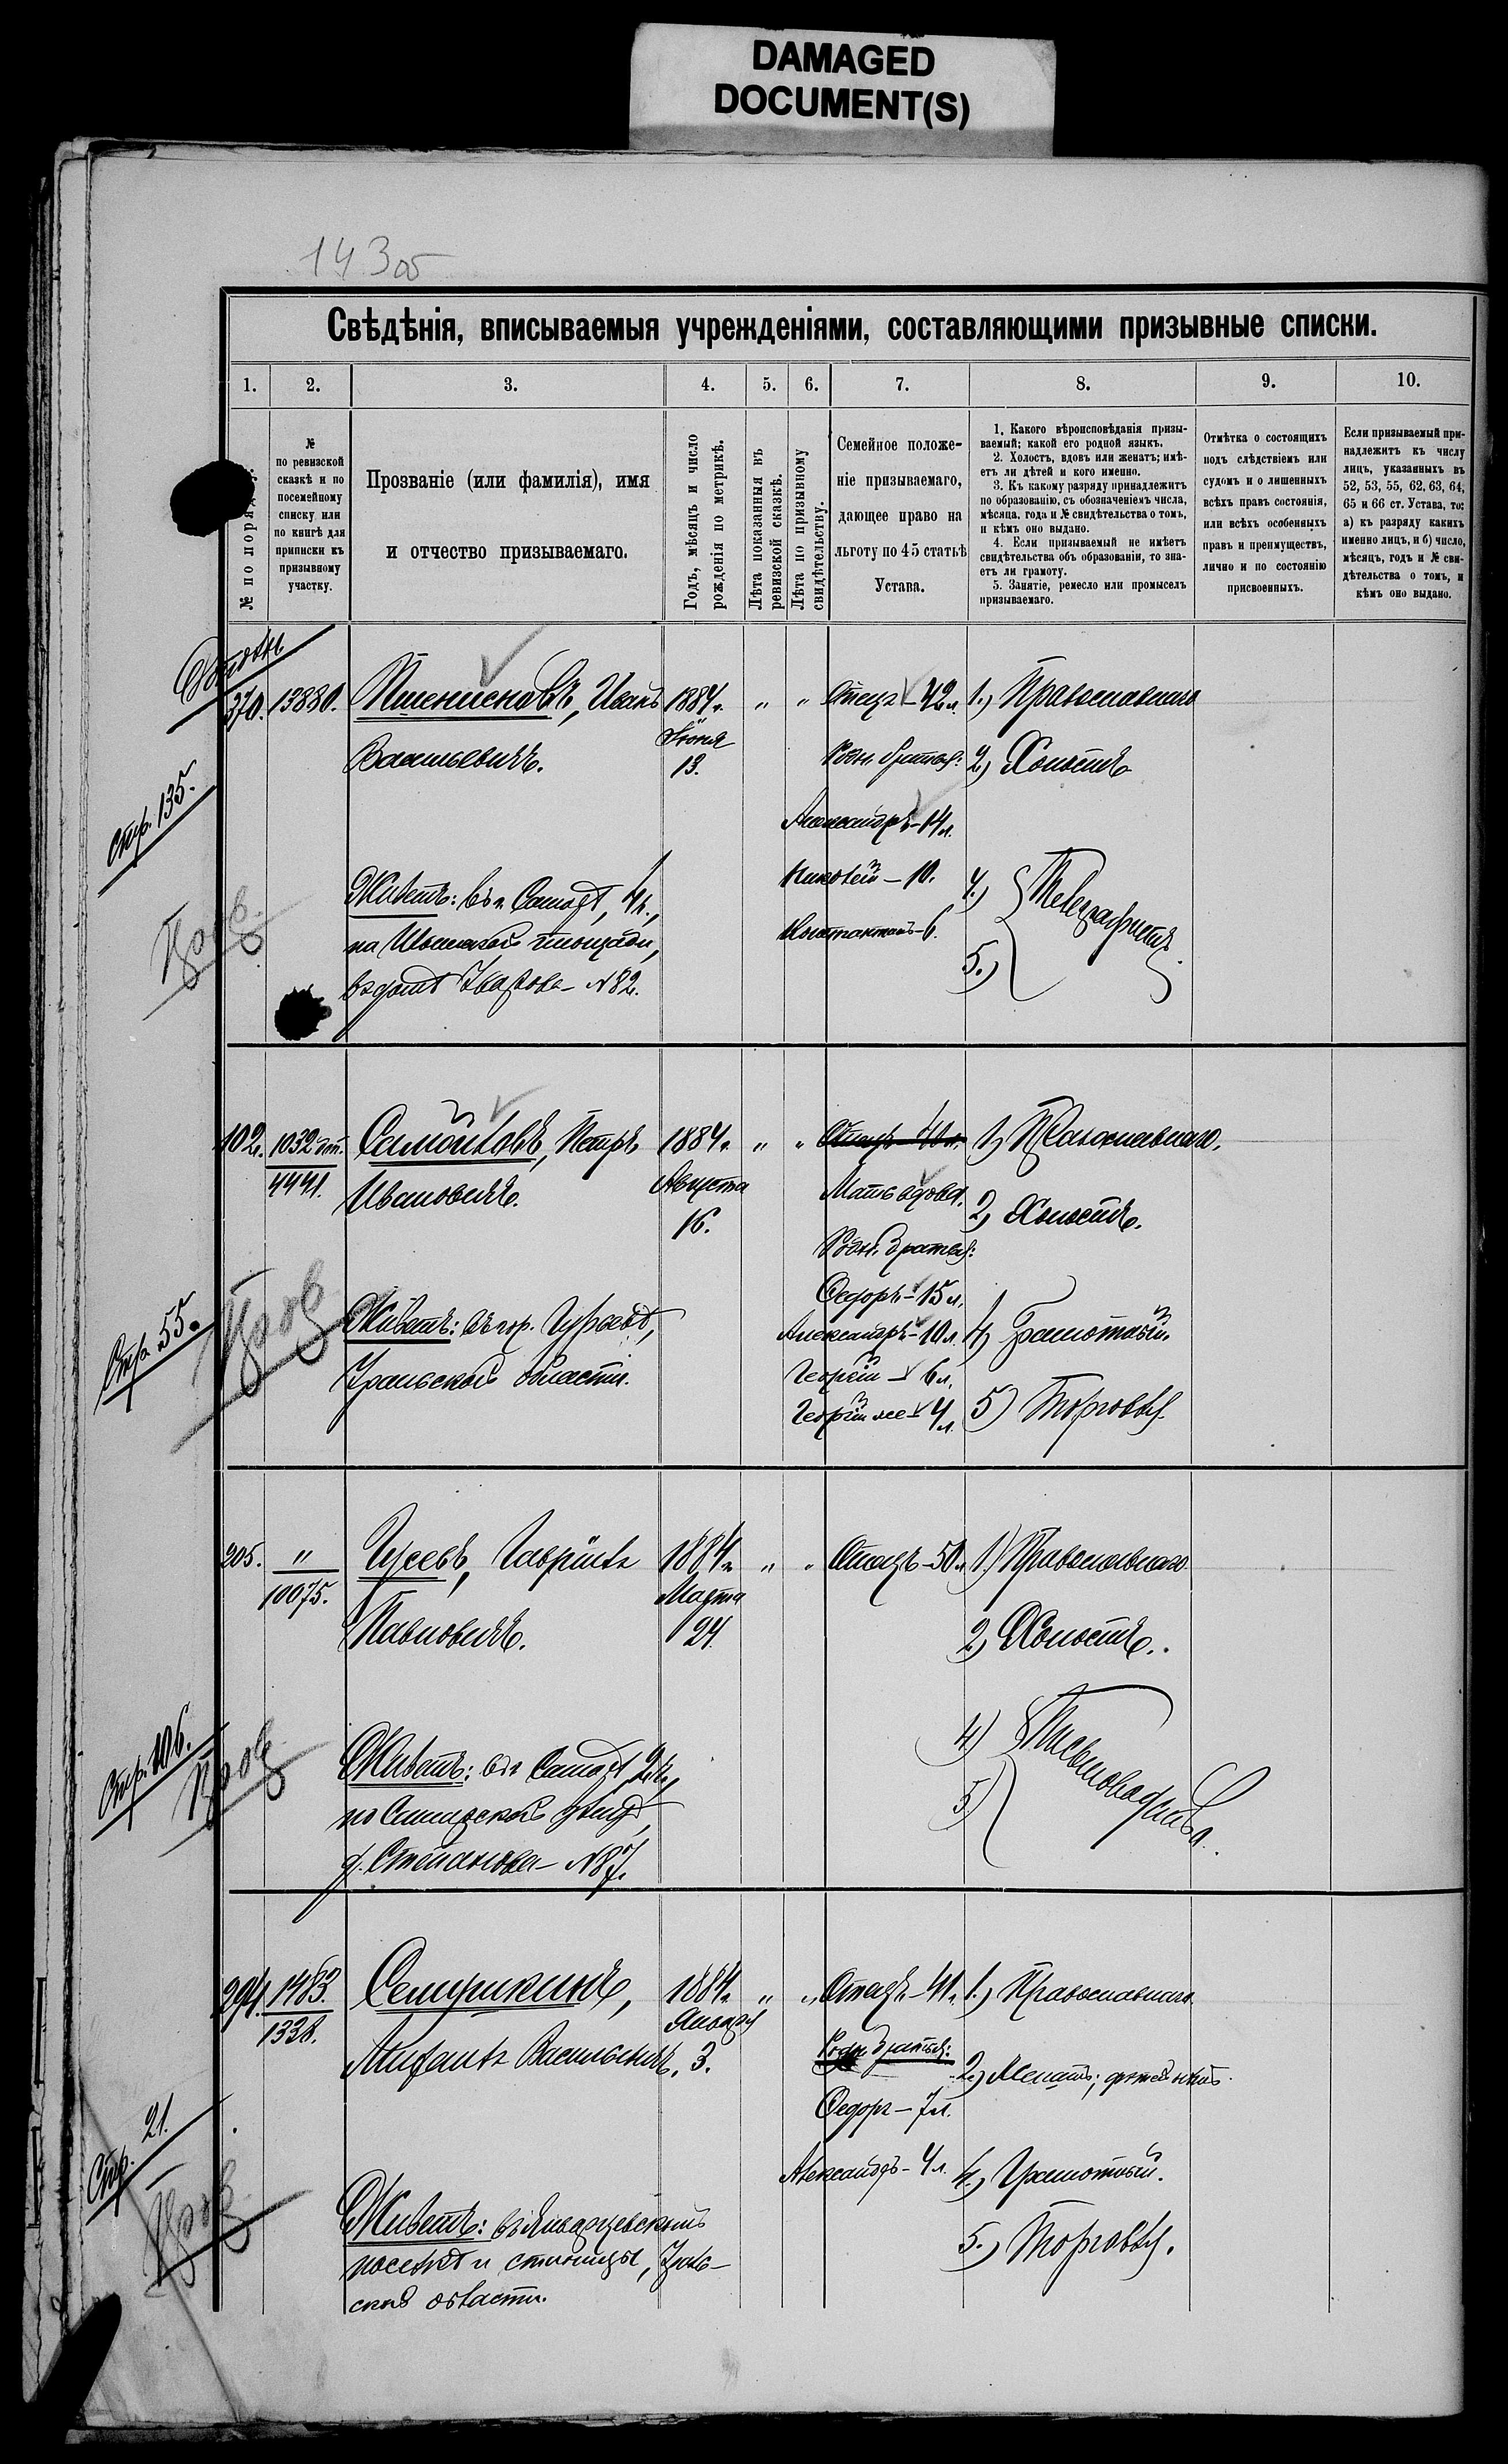 DAMAGED
DOCUMENT(S)
143об
Свѣдѣнія, вписываемыя учрежденіями, составляющими призывные списки.
1. 2. 3. 4. 5. 6. 7. 8. 9. 10.
№ по поряд
№
по ревизской
сказкѣ и по
посемейному
списку или
по книгѣ для
приписки къ
призывному
участку.
Прозваніе (или фамилія), имя
и отчество призываемаго.
Годъ, мѣсяцъ и число
рожденія по метрикѣ.
Лѣта показанныя въ
ревизской сказкѣ.
Лѣта по призывному
свидѣтельству.
Семейное положе-
ніе призываемаго,
дающее право на
льготу по 45 статьѣ
Устава.
1. Какого вѣроисповѣданія призы-
ваемый; какой его родной языкъ.
2. Холостъ, вдовъ или женатъ; имѣ-
етъ ли дѣтей и кого именно.
3. Къ какому разряду принадлежитъ
по образованію, съ обозначеніемъ числа,
мѣсяца, года и № свидѣтельства о томъ,
и кѣмъ оно выдано.
4. Если призываемый не имѣетъ
свидѣтельства объ образованіи, то зна-
етъ ли грамоту.
5. Занятіе, ремесло или промыселъ
призываемаго.
Отмѣтка о состоящихъ
подъ слѣдствіемъ или
судомъ и о лишенныхъ
всѣхъ правъ состоянія,
или всѣхъ особенныхъ
правъ и преимуществъ,
лично и по состоянію
присвоенныхъ.
Если призываемый при-
надлежитъ къ числу
лицъ, указанныхъ въ
52, 53, 55, 62, 63, 64,
65 и 66 ст. Устава, то:
а) къ разряду какихъ
именно лицъ, и б) число,
мѣсяцъ, годъ и № сви-
дѣтельства о томъ, и
кѣмъ оно выдано.
370. 13880. Пшенисновъ, Иванъ 1884г. " " Отецъ - 42л. 1.) Православнаго
Васильевичъ. Іюня 13. Родн. братья: 2.) Холостъ
Стр. 135.
Александръ - 14л.
Живетъ: въ г. Самарѣ, 4ч., Николай - 10. 4.) Телеграфистъ
на площади, Константинъ - 6. 5.)
въ домѣ - №82.
102. 1032 Самойловъ, Петръ 1884г. " " Отецъ 40л. 1) Православнаго.
4441. Ивановичъ. Августа Мать вдова. 2) Холостъ.
16. Родн. братья:
Стр. 55.
Федоръ - 15л.
Живетъ: въ гор. Гурьевѣ, Александръ - 10л. 4) Грамотный.
Уральской области. Георгій - 6л.
Георгій же - 4л. 5) Торговля.
205. " Гусевъ, Гавріилъ 1884г. " " Отецъ - 50л. 1) Православнаго.
10075. Павловичъ. Марта
24. 2) Холостъ.
Стр. 106.
Живетъ: въ г. Самарѣ, 2ч., 4) Письмоводитель.
по Симбирской улицѣ, 5)
д. Степанова - №87.
294. 1483. Семушкинъ, 1884г. " " Отецъ - 41. 1.) Православнаго
1338. Января Родн. братья:
Васильевичъ. 3. 2.) Женатъ; дѣтей нѣтъ.
Федоръ - 7л.
Стр. 21.
Александръ - 4л. 4.) Грамотный.
Живетъ: въ Январцевскомъ
поселкѣ и станицы, Ураль- 5.) Торговля.
ской области.